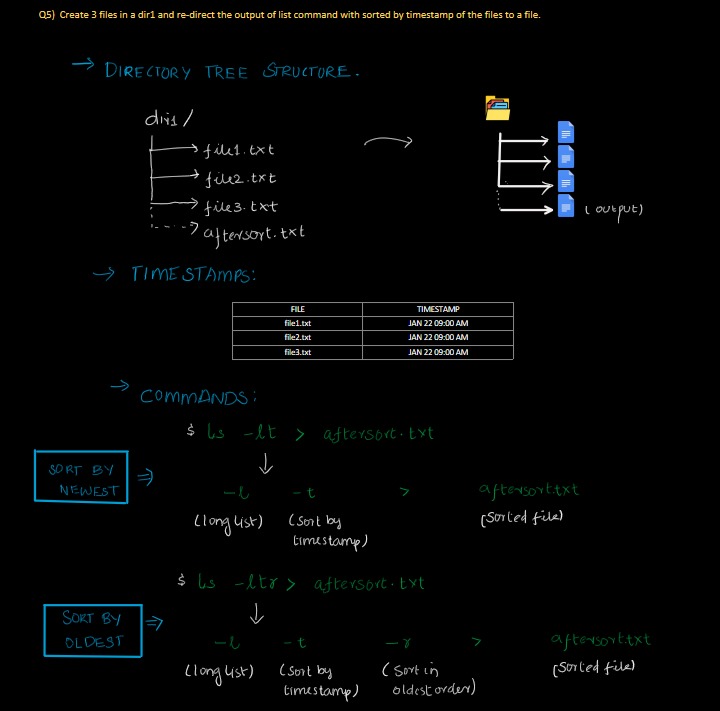 Q5) Create 3 files in a dir1 and re-direct the output of list command with sorted by timestamp of the files to a file.
→ DIRECTORY TREE STRUCTURE.
dir1/
file1.txt
file2.txt
file3.txt
aftersort.txt
(output)
→ TIMESTAMPS:
FILE TIMESTAMP
file1.txt JAN 22 09:00 AM
file2.txt JAN 22 09:00 AM
file3.txt JAN 22 09:00 AM
→ COMMANDS:
$ ls -lt > aftersort.txt
SORT BY
NEWEST
-l -t > aftersort.txt
(long list) (Sort by
timestamp) (Sorted file)
$ ls -ltr > aftersort.txt
SORT BY
OLDEST
-l -t -r > aftersort.txt
(long list) (Sort by
timestamp) (Sort in
oldest order) (Sorted file)